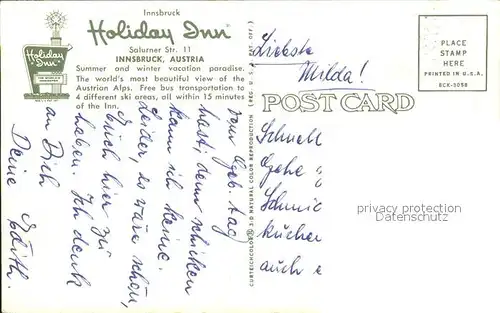 Innsbruck
Holiday Inn
Salurner Str. 11
INNSBRUCK, AUSTRIA
Summer and winter vacation paradise.
The world's most beautiful view of the
Austrian Alps. Free bus transportation to
4 different ski areas, all within 15 minutes
of the Inn.
Holiday
Inn
POST CARD
PLACE
STAMP
HERE
PRINTED IN U.S.A.
CURTEICHCOLOR ® 3-D NATURAL COLOR REPRODUCTION (REG. U.S.A. PAT. OFF.)
Liebste
Milda!
Schnell
auch
vom Geb. tag
hast, denn schicken
kann ich keine.
Leider, es wäre schön,
Euch hier zu
haben. Ich denk
an Dich
Deine Edith.
privacy protection
Datenschutz